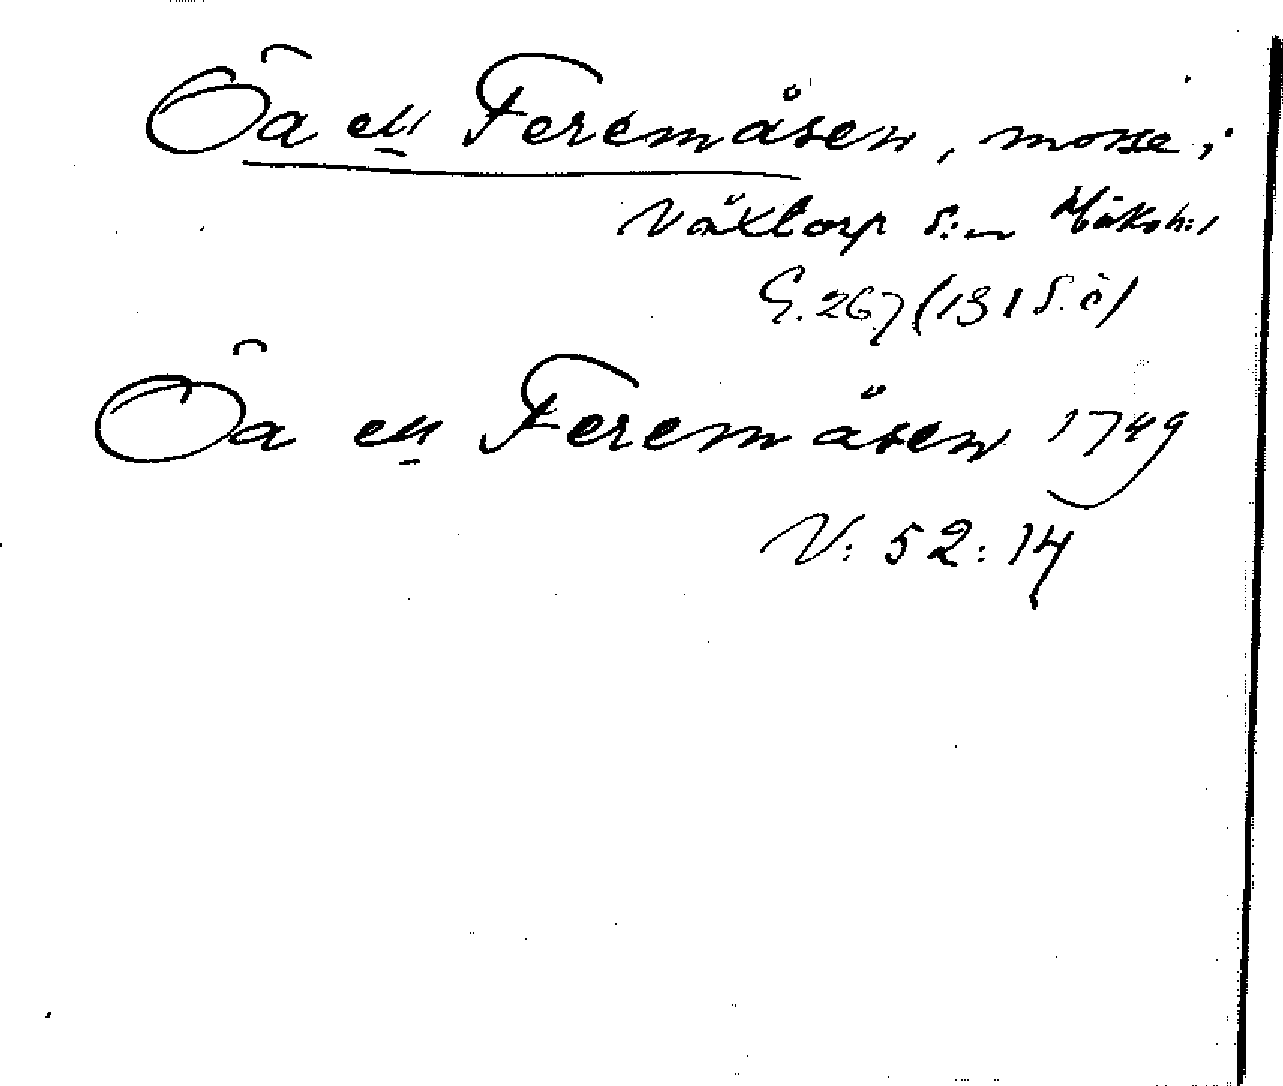 Öa ell Feremåsen, mosse i
Växtorp s:n Höksh:d
G. 267 (131 S.ö)
Öa ell Feremåsen 1749
V: 52: 14